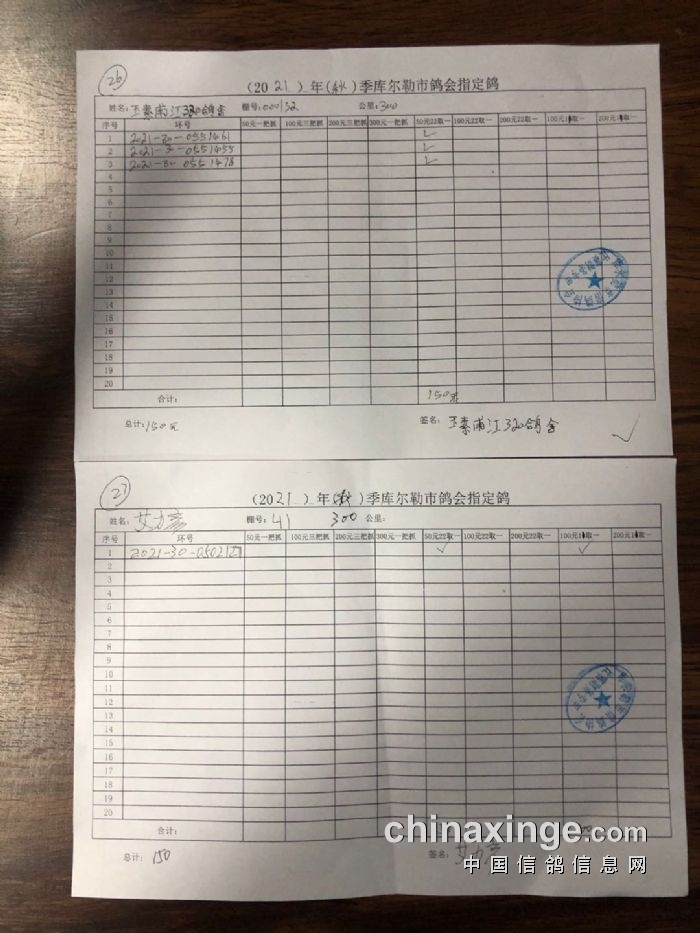 26
(2021)年(秋)季库尔勒市鸽会指定鸽
姓名: 王素甫江320鸽舍 棚号:000152 公里:300
序号 环号 50元一把抓 100元三把抓 200元三把抓 300元一把抓 50元22取一 100元22取一 200元22取一 100元1取一 200元1取一
1 2021-30-0551461 ✓
2 2021-30-0551455 ✓
3 2021-30-0551478 ✓
4
5
6
7
8
9
10
11
12
13
14
15
16
17
18
19
20
合计: 150元
总计:150元 签名: 王素甫江320鸽舍 ✓
27
(2021)年(秋)季库尔勒市鸽会指定鸽
姓名: 艾力 棚号: 41 300 公里:
序号 环号 50元一把抓 100元三把抓 200元三把抓 300元一把抓 50元22取一 100元22取一 200元22取一 100元1取一 200元1取一
1 ✓ ✓
2
3
4
5
6
7
8
9
10
11
12
13
14
15
16
17
18
19
20
合计:
总计: 150 签名: 艾力
chinaxinge.com
中国信鸽信息网